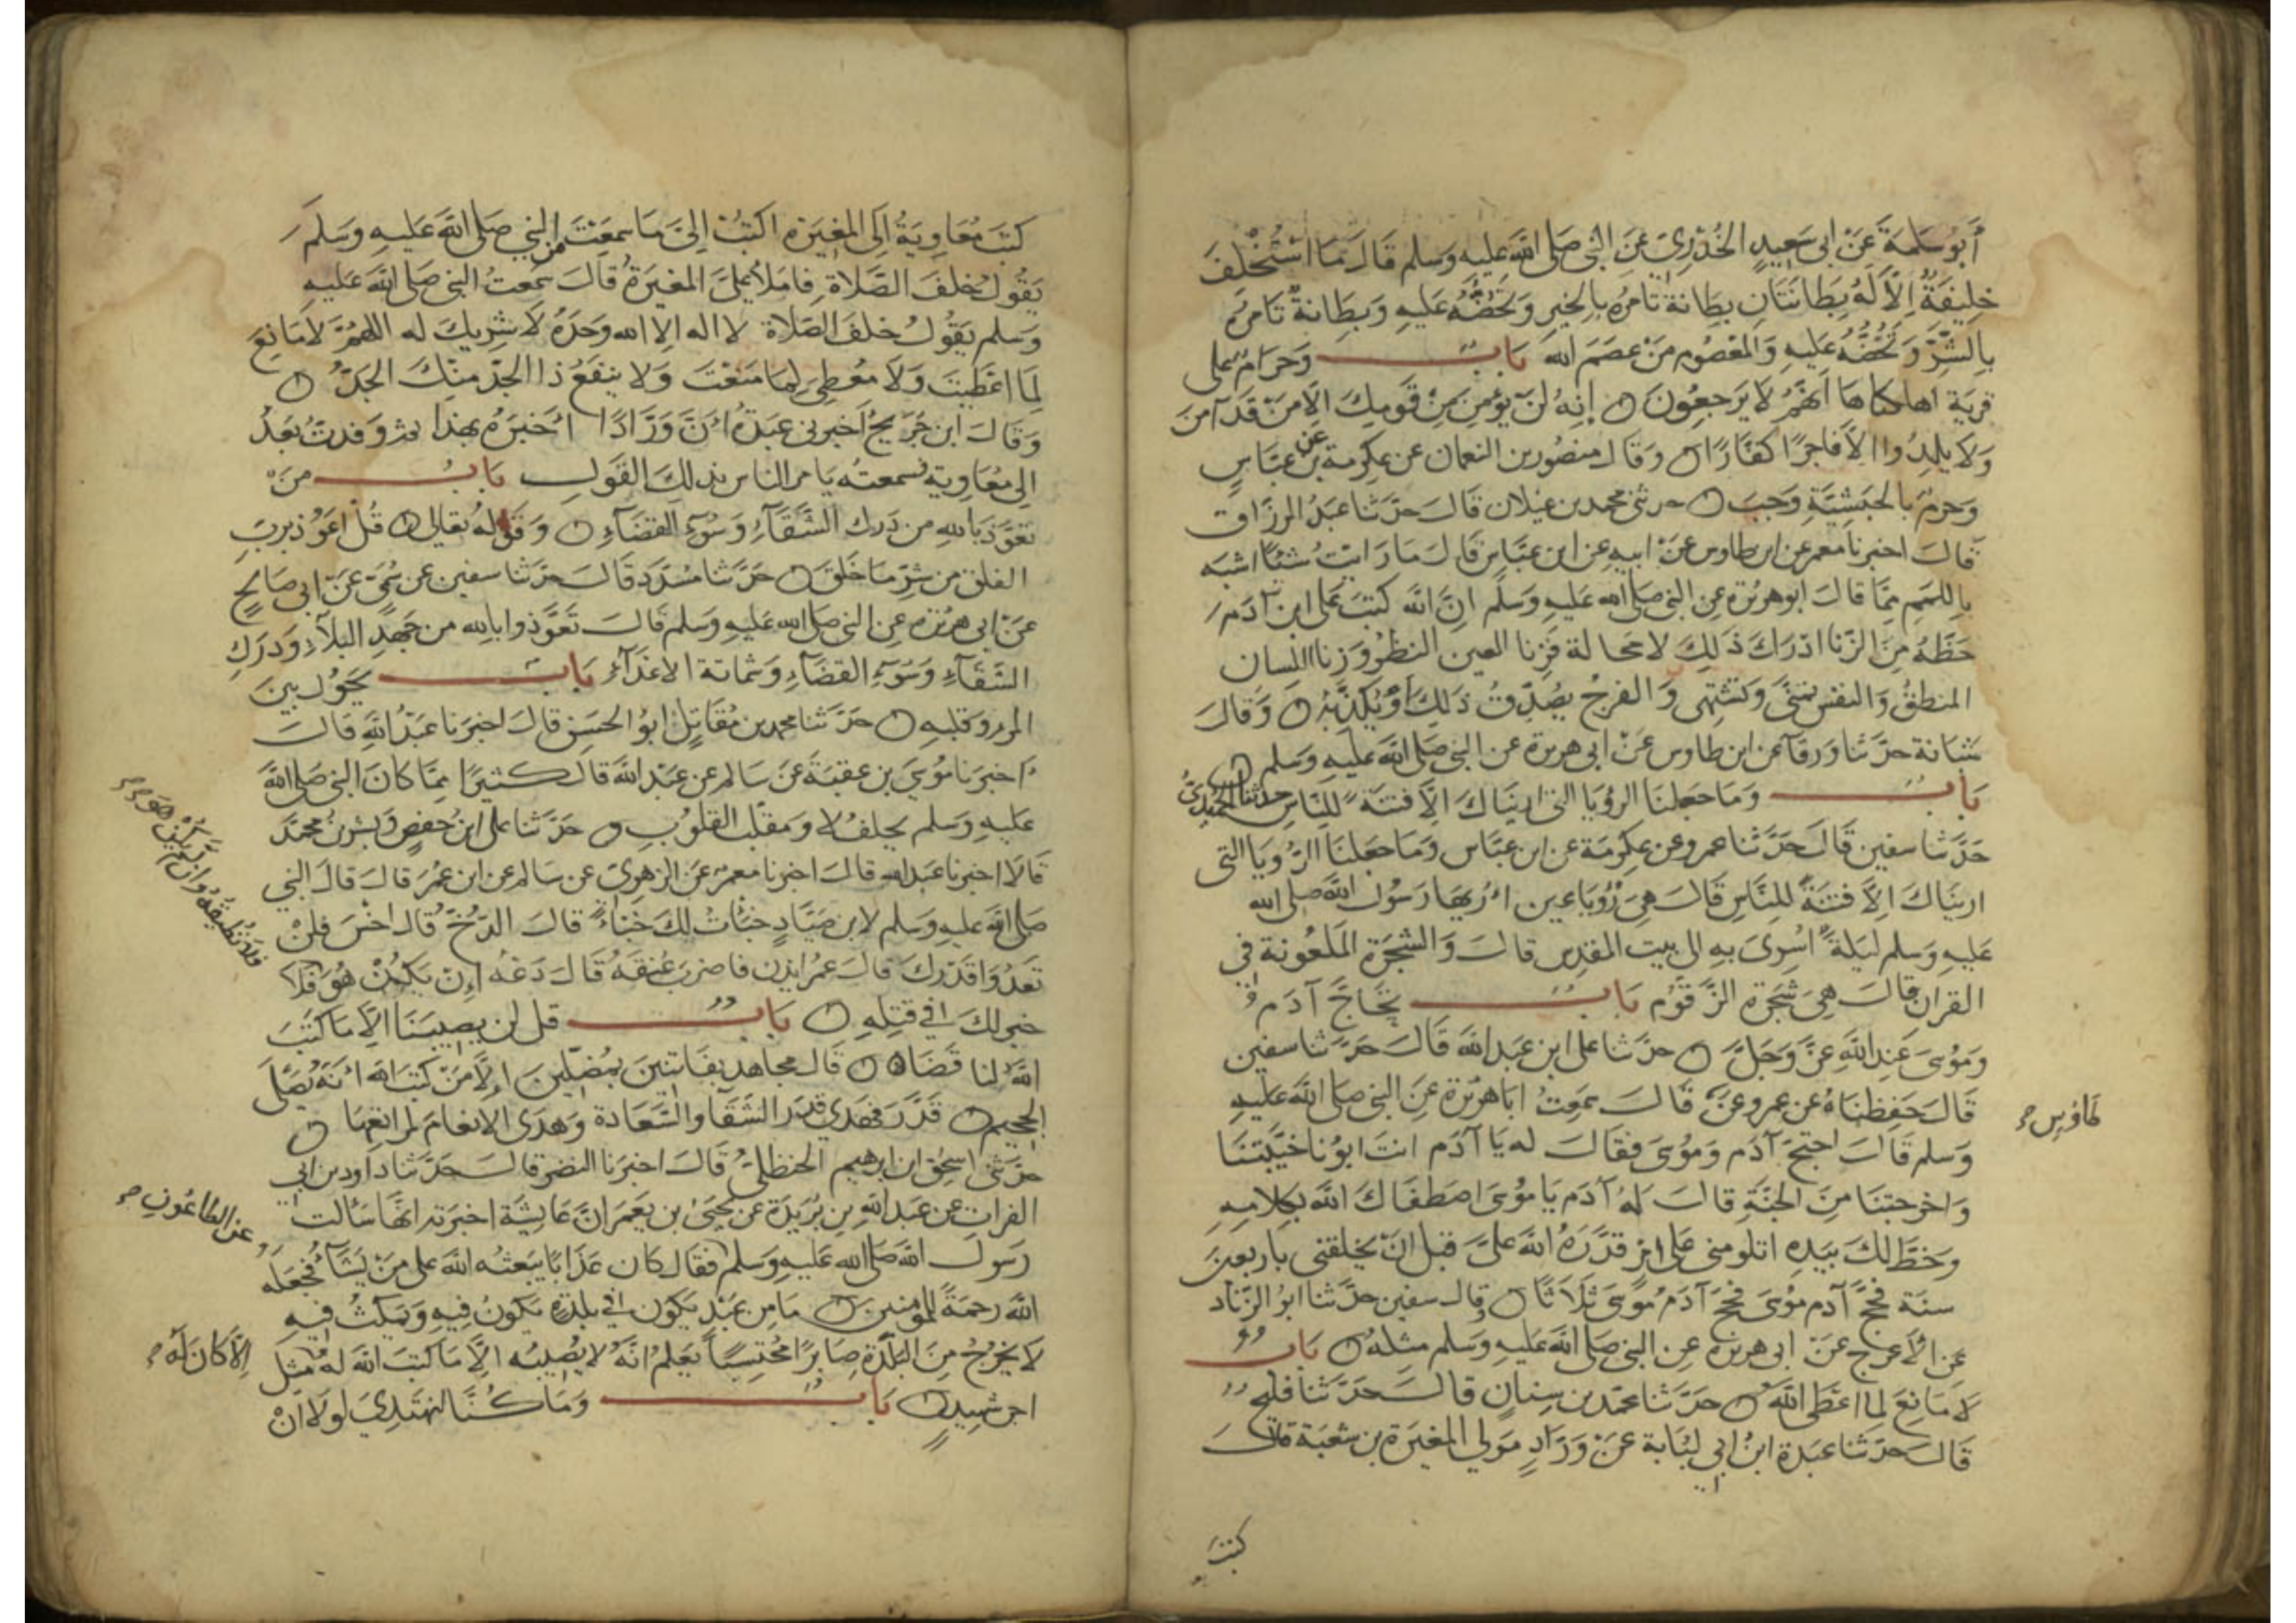 أبو سلمة عن ابى سعيد الخدرى عن النبى صلى الله عليه وسلم قال ما استخلف
خليفة الا له بطانتان بطانة تامره بالخير وتحضه عليه وبطانة تامره
بالشر وتحضه عليه والمعصوم من عصم الله باب وحرام على
قرية اهلكناها انهم لا يرجعون انه لن يؤمن من قومك الا من قد آمن
ولا يلدوا الا فاجرا كفارا وقال منصور بن النعمان عن عكرمة عن بن عباس
وحرم بالحبشية وجب حدثنى محمد بن غيلان قال حدثنا عبد الرزاق
قال اخبرنا معمر عن ابن طاوس عن ابيه عن ابن عباس قال ما رايت شئا اشبه
باللمم مما قال ابو هريرة عن النبى صلى الله عليه وسلم ان الله كتب على ابن آدم
حظه من الزنا ادرك ذلك لا محالة فزنا العين النظر وزنا اللسان
المنطق والنفس تمنى وتشتهى والفرج يصدق ذلك او يكذبه وقال
شبانة حدثنا ورقآ عن ابن طاوس عن ابى هريرة عن النبى صلى الله عليه وسلم
باب وما جعلنا الرؤيا التى اريناك الا فتنة للناس حدثنا الحميدى
حدثنا سفين قال حدثنا عمرو عن عكرمة عن ابن عباس وما جعلنا الرؤيا التى
اريناك الا فتنة للناس قال هى رؤيا عين اريها رسول الله صلى الله
عليه وسلم ليلة اسرى به الى بيت المقدس قال والشجرة الملعونة فى
القران قال هى شجرة الزقوم باب تحاج آدم
وموسى عند الله عز وجل حدثنا على ابن عبد الله قال حدثنا سفين
قال حفظناه عن عمرو عن قال سمعت ابا هريرة عن النبى صلى الله عليه
طاوس
وسلم قال احتج آدم وموسى فقال له يا آدم انت ابونا خيبتنا
واخرجتنا من الجنة قال له آدم يا موسى اصطفاك الله بكلامه
وخط لك بيده اتلومنى على امر قدره الله على قبل ان يخلقنى باربعين
سنة فحج آدم موسى فحج آدم موسى ثلاثا وقال سفين حدثنا ابو الزناد
عن الاعرج عن ابى هريرة عن النبى صلى الله عليه وسلم مثله باب
لا مانع لما اعطى الله حدثنا محمد بن سنان قال حدثنا فليح
قال حدثنا عبدة ابن ابى لبابة عن وراد مولى المغيرة بن شعبة قال
كتب
كتب معاوية الى المغيرة اكتب الى ما سمعت من النبى صلى الله عليه وسلم
يقول خلف الصلاة فاملا على المغيرة قال سمعت النبى صلى الله عليه
وسلم يقول خلف الصلاة لا اله الا الله وحده لا شريك له اللهم لا مانع
لما اعطيت ولا معطى لما منعت ولا ينفع ذا الجد منك الجد
وقال ابن جريج اخبرنى عبدة ان ورادا اخبره بهذا ثم وفدت بعد
الى معاوية فسمعته يامر الناس بذلك القول باب من
تعوذ بالله من درك الشقآء وسوء القضآء وقوله تعالى قل اعوذ برب
الفلق من شر ما خلق حدثنا مسدد قال حدثنا سفين عن سمى عن ابى صالح
عن ابى هريرة عن النبى صلى الله عليه وسلم قال تعوذوا بالله من جهد البلآء ودرك
الشقآء وسوء القضآء وشماتة الاعدآء باب يحول بين
المرء وقلبه حدثنا محمد بن مقاتل ابو الحسن قال اخبرنا عبد الله قال
اخبرنا موسى بن عقبة عن سالم عن عبد الله قال كثيرا مما كان النبى صلى الله
عليه وسلم يحلف لا ومقلب القلوب حدثنا على ابن حفص وبشر بن محمد
قالا اخبرنا عبد الله قال اخبرنا معمر عن الزهرى عن سالم عن ابن عمر قال قال النبى
صلى الله عليه وسلم لابن صياد خبات لك خباء قال الدخ قال اخس فلن
تعدوا قدرك قال عمر ايذن فاضرب عنقه قال دعه ان يكن هو فلا
فلا تطيقه وان لم يكن هو
خير لك فى قتله باب قل لن يصيبنا الا ما كتب
الله لنا قضاه قال مجاهد بفاتنين بمضلين الا من كتب الله انه يصلى
الجحيم قدر فهدى قدر الشقآ والسعادة وهدى الانعام لمراتعها
حدثنى اسحق ابن ابرهيم الحنظلى قال اخبرنا النضر قال حدثنا داود بن ابى
الفرات عن عبد الله بن بريدة عن يحيى بن يعمر ان عايشة اخبرته انها سالت
رسول الله صلى الله عليه وسلم فقال كان عذابا يبعثه الله على من يشآ فجعله
عن الطاعون
الله رحمة للمؤمنين ما من عبد يكون فى بلدة يكون فيه ويمكث فيه
لا يخرج من البلدة صابرا محتسبا يعلم انه لا يصيبه الا ما كتب الله له مثل
الا كان له
اجر شهيد باب وما كنا لنهتدى لولا ان